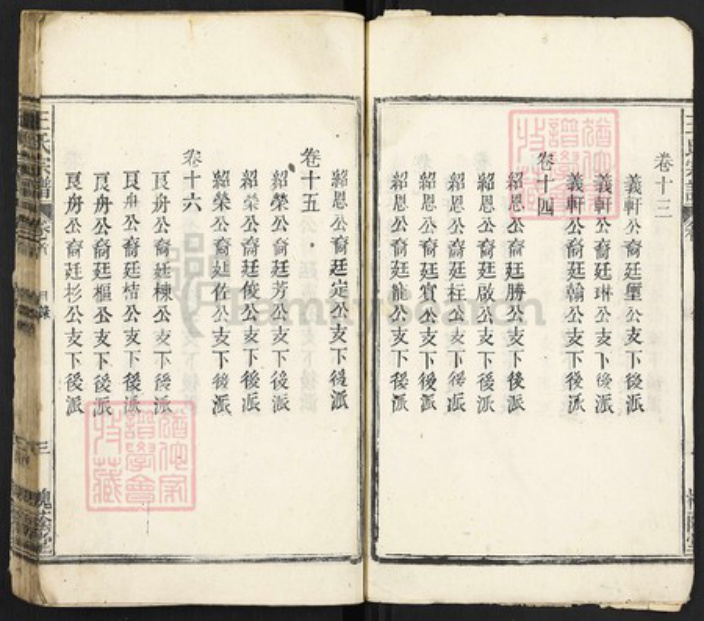 卷十三
義軒公裔廷璽公支下後派
義軒公裔廷琳公支下後派
義軒公裔廷翰公支下後派
卷十四
紹恩公裔廷勝公支下後派
紹恩公裔廷啟公支下後派
紹恩公裔廷柱公支下後派
紹恩公裔廷賓公支下後派
紹恩公裔廷龍公支下後派
紹恩公裔廷定公支下後派
卷十五
紹榮公裔廷芳公支下後派
紹榮公裔廷俊公支下後派
紹榮公裔廷佐公支下後派
卷十六
良舟公裔廷棟公支下後派
良舟公裔廷桔公支下後派
良舟公裔廷樞公支下後派
良舟公裔廷杉公支下後派
王氏宗譜
目錄
三
槐蔭堂
FamilySearch